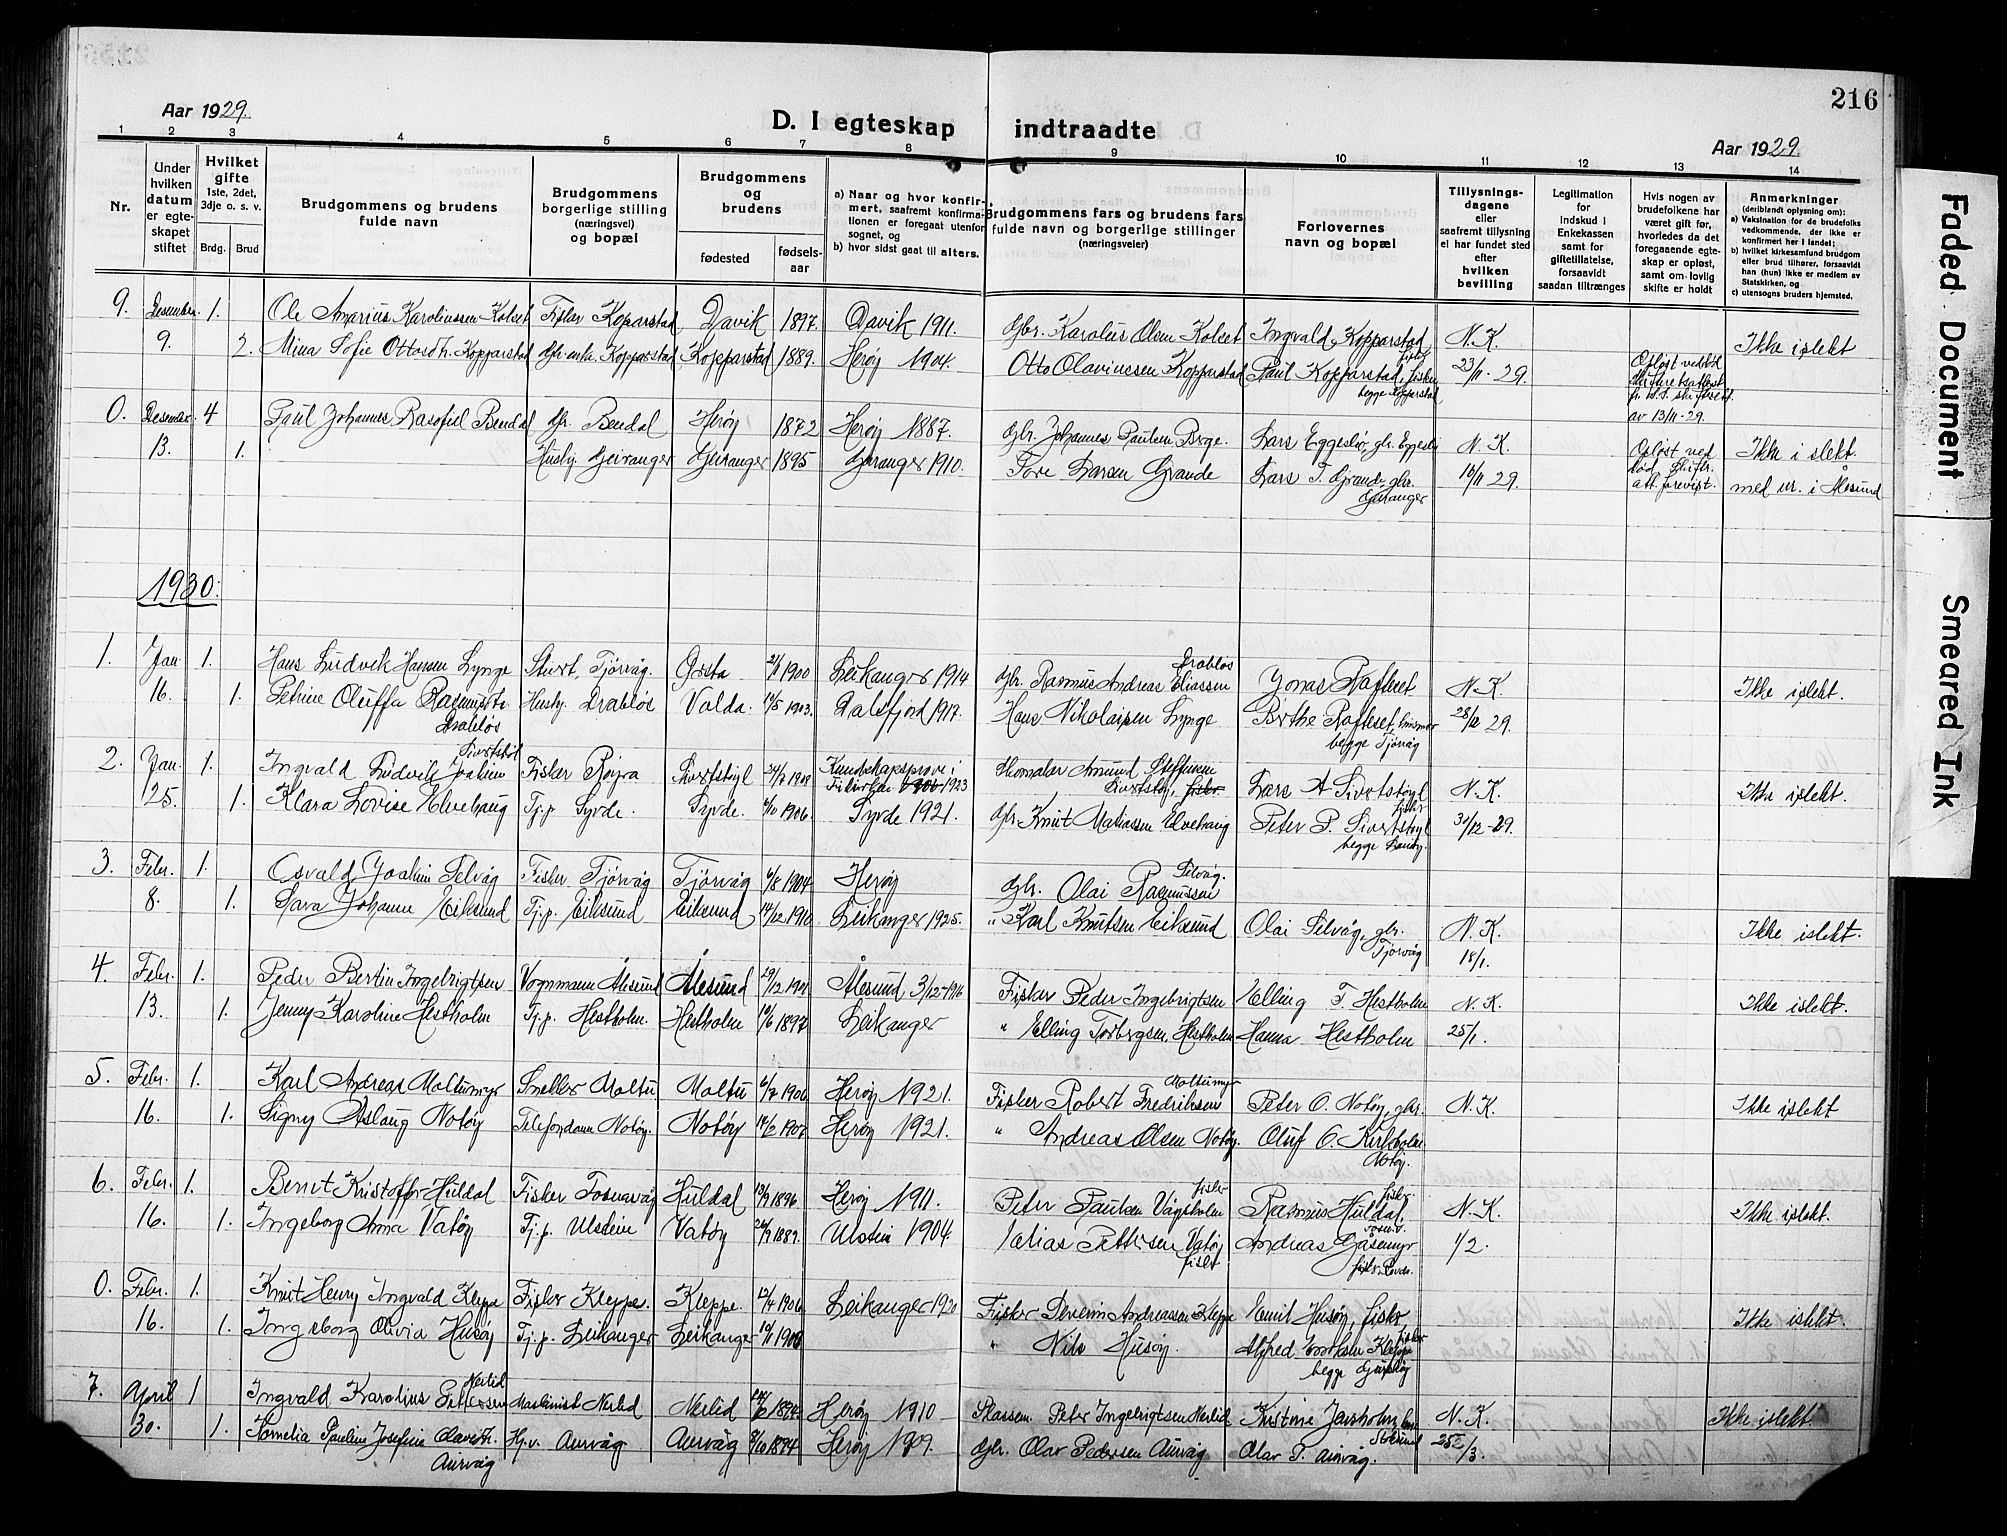 216
Aar 1929.
D. I egteskap indtraadte
Aar 1929.
1 2 3 4 5 6 7 8 9 10 11 12 13 14
Nr.
Under hvilken datum er egteskapet stiftet
Hvilket gifte 1ste, 2det, 3dje o. s. v.
Brdg. Brud
Brudgommens og brudens fulde navn
Brudgommens borgerlige stilling (næringsvei) og bopæl
Brudgommens og brudens
fødested
fødsels-aar
a) Naar og hvor konfirmert, saafremt konfirmationen er foregaat utenfor sognet, og
b) hvor sidst gaat til alters.
Brudgommens fars og brudens fars fulde navn og borgerlige stillinger (næringsveier)
Forlovernes navn og bopæl
Tillysningsdagene eller saafremt tillysning ei har fundet sted efter hvilken bevilling
Legitimation for indskud i Enkekassen samt for giftetillatelse, forsaavidt saadan tiltrænges
Hvis nogen av brudefolkene har været gift før, hvorledes da det foregaaende egteskap er opløst, samt om lovlig skifte er holdt
Anmerkninger (deriblandt oplysning om):
a) Vaksination for de brudefolks vedkommende, der ikke er konfirmert her i landet;
b) hvilket kirkesamfund brudgom eller brud tilhører, forsaavidt han (hun) ikke er medlem av Statskirken, og
c) utensogns bruders hjemsted.
9. Desember 1. Ole Amarius Karolinssen Kolset Fisker Koparstad Davik 1897. Davik 1911. Gbr. Karolus Olsen Kolset Ingvald Kopparstad fisker N.K. Ikke i slekt
9. 2. Mina Sofie Ottosdtr. Kopparstad Gbr.enk. Kopparstad Kopparstad 1889. Herøy 1904. Otto Olavinssen Kopparstad Paul Kopparstad, fisker begge Kopparstad 23/11-29. Opløst ved død
av 13/11-29.
0. Desember 4 Paul Johannes Rasofiel Bendal Gbr. Bendal Herøy 1872 Herøy 1887. Gbr. Johannes Paulsen Berge. Lars Eggesbø, gbr. Eggesbø N.K. Opløst ved død Ikke i slekt.
13. 1. Husbg. Geiranger Geiranger 1895 Geiranger 1910. Tore Larsen Grande Lars T. Grande, gbr. Geiranger 16/11 29. att. forevist. med nr. i Ålesund
1930.
1. Jan 1. Hans Ludvik Hansen Lynge Stuert, Tjørvåg. Ørsta 21/1 1900 Leikanger 1914 Gbr. Rasmus Andreas Eliassen Drabløs Jonas Rafteset N.K. Ikke i slekt.
16. 1. Petrine Oluffa Rasmusdtr. Drabløs Husbg. Drabløs Volda. 14/5 1903. Dalsfjord 1917. Hans Nikolaisen Lynge Birthe Rafteset, begge Tjørvåg 28/12 29.
2. Jan. 1. Ingvald Ludvik Joakim Sivertstøl Fisker Røyra Sivertstøyl 24/7 1908 Kundskapsprøve i 1923 Amund Steffensen N.K. Ikke i slekt.
25. 1. Klara Lovise Elvehaug Tj.p. Syvde. Syvde. 1906. Syvde 1921. Gbr. Knut Matiassen Elvehaug Lars A Sivertstøyl fisker Peter P. Sivertstøyl begge 31/12-29.
3. Febr. 1. Osvald Joakim Selvåg Fisker Tjørvåg Tjørvåg 6/8 1904 Herøy Gbr. Olai Rasmussen Selvåg. Olai Selvåg, gbr. Tjørvåg N.K. Ikke i slekt.
8. 1. Sara Johanne Eiksund Tj.p. Eiksund Eiksund 14/12 1910 Leikanger 1925. " Karl Knutsen Eiksund 18/1.
4. Febr. 1. Peder Bertin Ingebrigtsen Vognmann Ålesund Ålesund 29/12 1901 Ålesund 3/12-1916 Fisker Peder Ingebrigtsen Elling T. Hestholm N.K. Ikke i slekt.
13. 1. Jenny Karoline Hestholm Tj.p. Hestholm. Hestholm 10/6 1897 Leikanger " Elling Torbergsen, Hestholm Hanna Hestholm 25/1.
5. Febr. 1. Karl Andreas Moltumyr Snekker Moltu Moltu 6/7 1906 Herøy 1921. Fisker Robert Fredriksen Moltumyr Peter O. Notøy, gbr. N.K. Ikke i slekt
16. 1. Signy Aslaug Notøy Telefondame Notøy. Notøy 1907 Herøy 1921. " Andreas Olsen Notøy. Oluf O. Kirkholm Notøy.
6. Febr. 1. Bernt Kristoffer Huldal Fisker Fosnavåg Huldal 13/9 1896 Herøy 1911. Peter Paulsen Vågsholm fisker Rasmus Huldal, fisker N.K. Ikke i slekt.
16. 1. Ingeborg Anna Vatøy Tj.p. Ulstein Vatøy 26/9 1889. Ulstein 1904. Elias Pettersen Vatøy fisker Andreas Gåsemyr 1/2.
0. Febr. 1. Knut Henry Ingvald Kleppe Fisker Kleppe. Kleppe. 12/4 1906 Leikanger 1920 Fisker Severin Andreassen Kleppe Emil Husøy, fisker, Ikke i slekt.
16. 1. Ingeborg Olivia Husøy Tj.p. Leikanger Leikanger 10/11 1908 " Nils Husøy. Alfred Kleppe fisker begge Gurskøy
7. April 1 Ingvald Karolius Pettersen Nerlid Maskinist Nerlid Nerlid 1894 Herøy 1910 Peter Ingebrigtsen Nerlid Kristine Jensholm, N.K. Ikke i slekt.
30. 1. Kornelia Pauline Josefine Olavsdtr. Aurvåg Hj.v. Aurvåg. Aurvåg 8/10 1894 Herøy 1909. Gbr. Olav Pedersen Aurvåg Olav P. Aurvåg. 25/3.
Faded Document
Smeared Ink